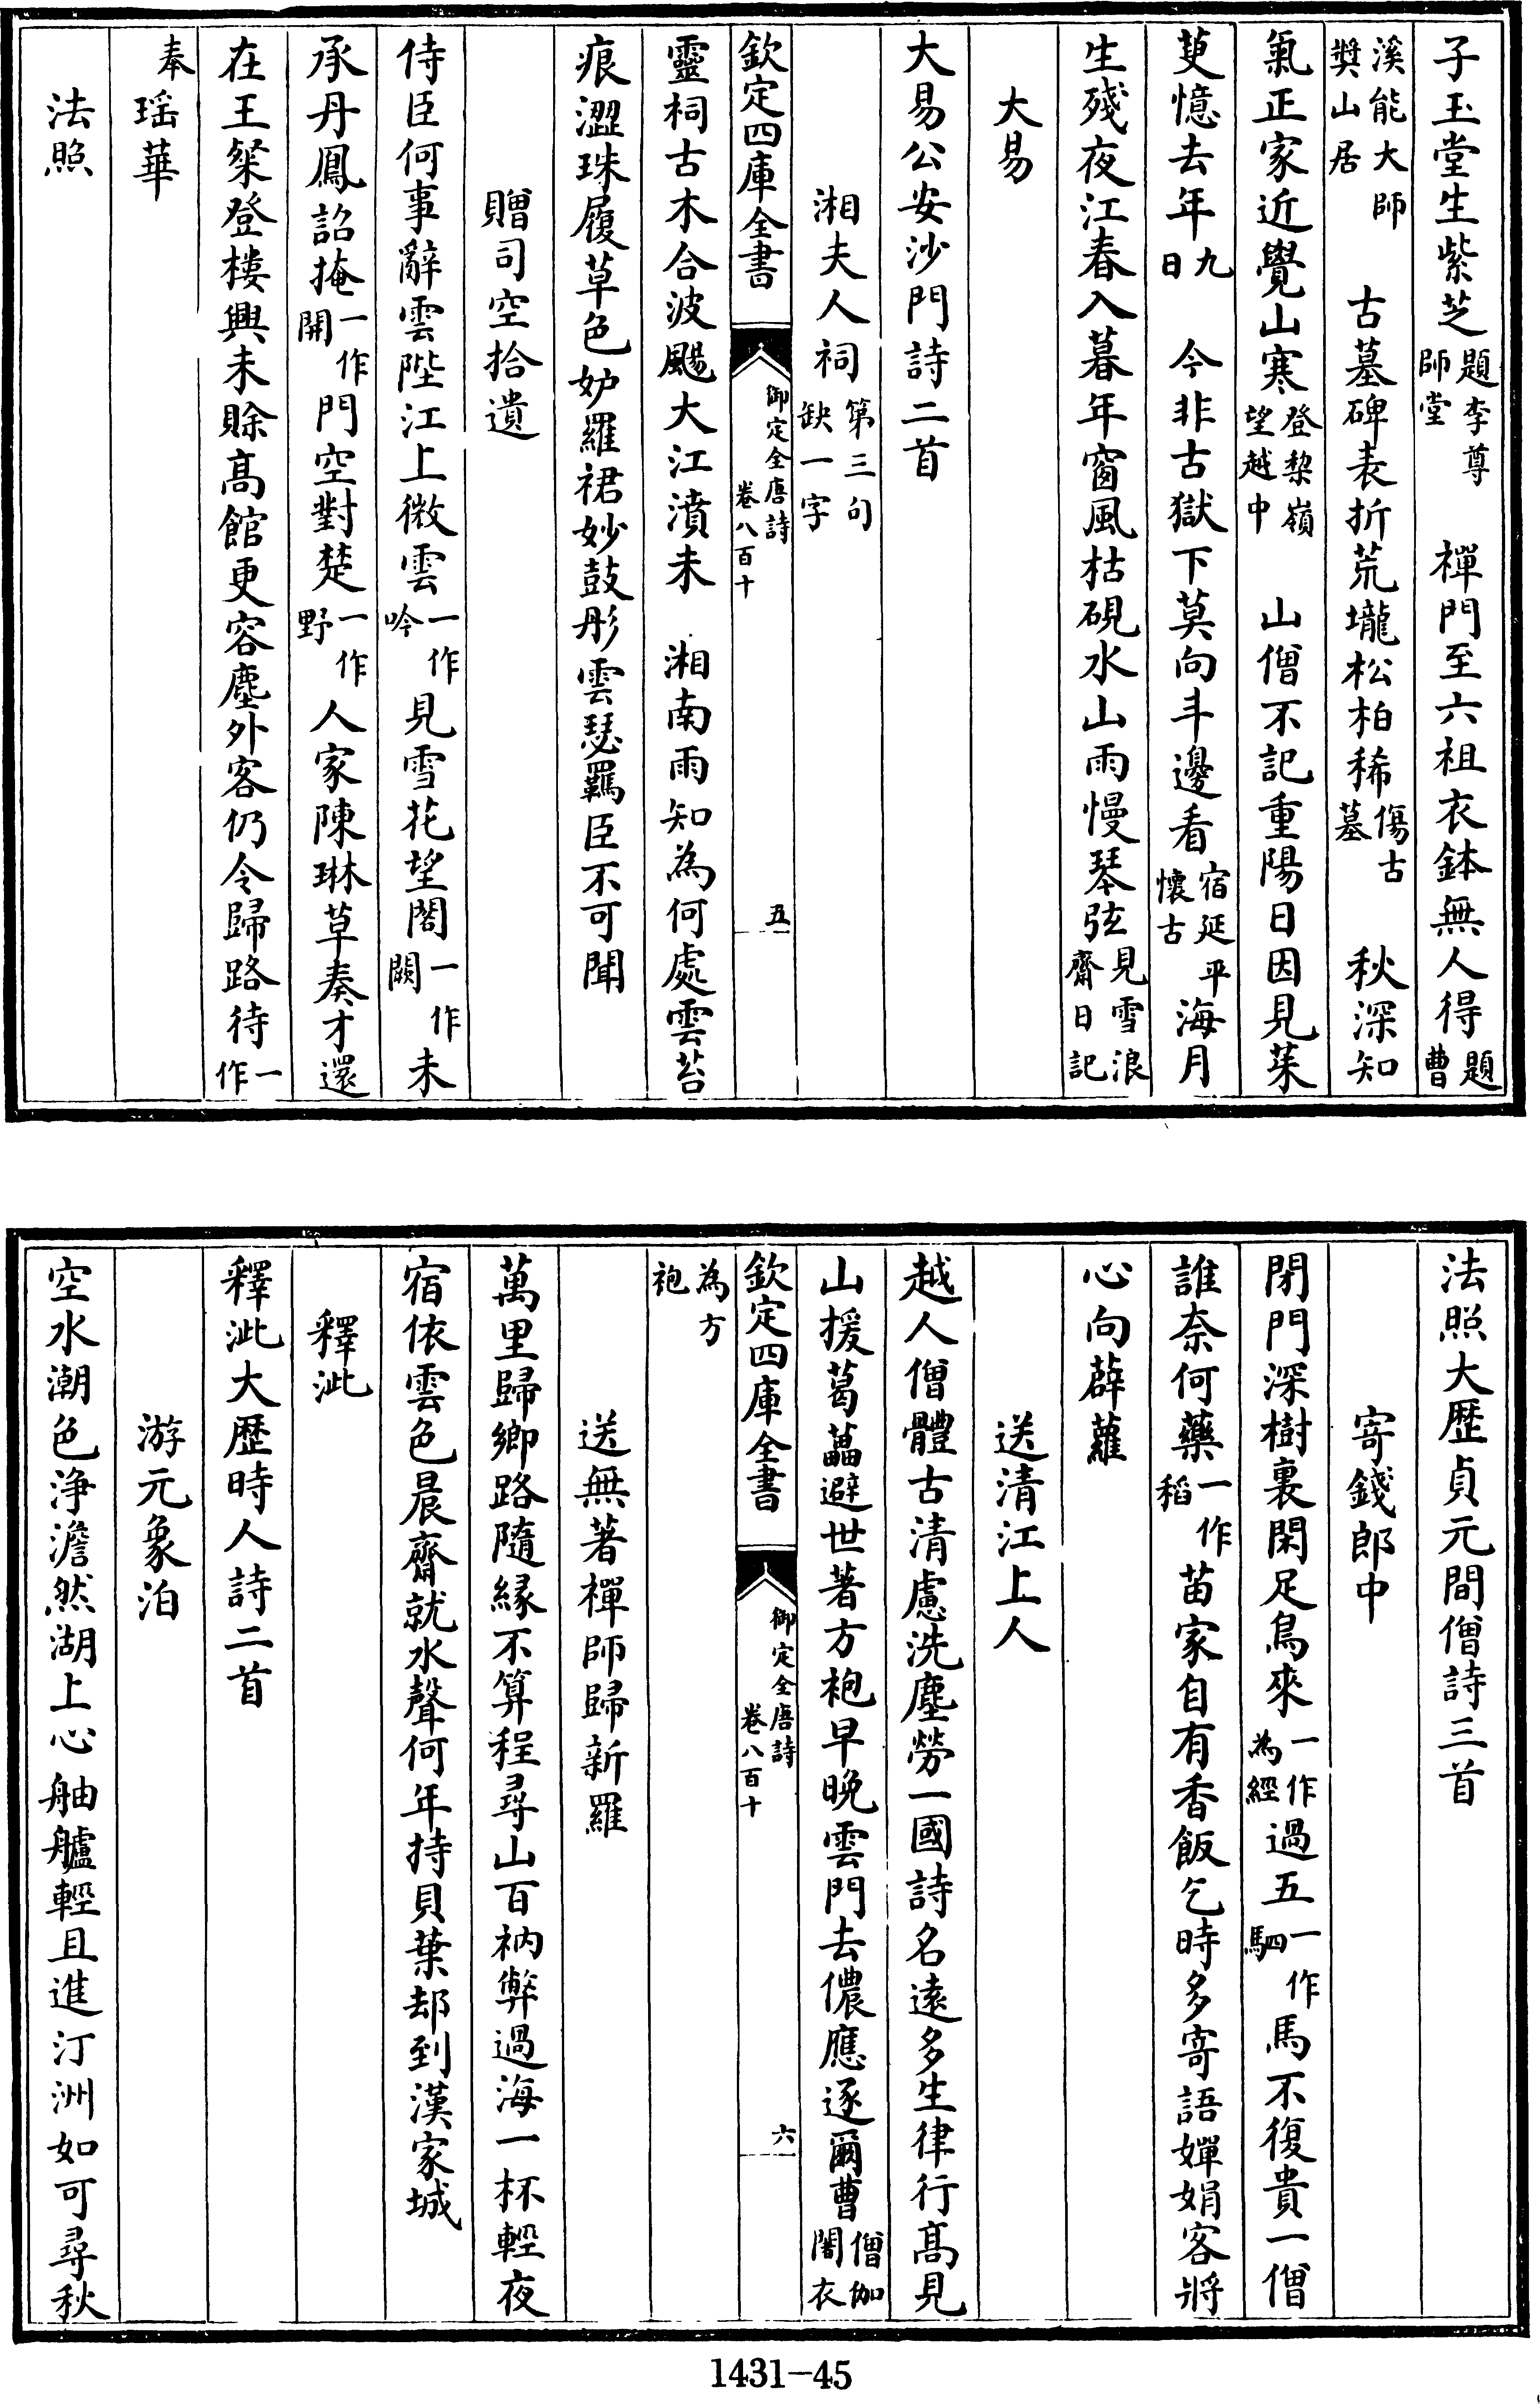 子玉堂生紫芝題李尊師堂　禪門至六祖衣鉢無人得題曹
溪能大師奬山居　古墓碑表折荒壠松柏稀傷古墓　秋深知
氣正家近覺山寒登棃嶺望越中　山僧不記重陽日因見茱
萸憶去年九日　今非古獄下莫向斗邊看宿延平懷古　海月
生殘夜江春入暮年窗風枯硯水山雨慢琴弦見雪浪齋日記
大易
大易公安沙門詩二首
湘夫人祠第三句缺一字
欽定四庫全書　御定全唐詩卷八百十　五
靈祠古木合波颺大江濆未　湘南雨知為何處雲苔
痕澀珠履草色妒羅裙妙鼓彤雲瑟羈臣不可聞
贈司空拾遺
侍臣何事辭雲陛江上微雲一作吟見雪花望閤一作闕未
承丹鳳詔掩一作開門空對楚一作野人家陳琳草奏才還
在王粲登樓興未賒髙館更容塵外客仍令歸路待一作
奉瑶華
法照
法照大歴貞元間僧詩三首
寄錢郎中
閉門深樹裏閑足鳥來一作為經過五一作駟馬不復貴一僧
誰奈何藥一作稻苗家自有香飯乞時多寄語嬋娟客將
心向薜蘿
送清江上人
越人僧體古清慮洗塵勞一國詩名遠多生律行髙見
山援葛藟避世著方袍早晚雲門去儂應逐爾曹僧伽闍衣
欽定四庫全書　御定全唐詩卷八百十　六
為方袍
送無著禪師歸新羅
萬里歸鄉路隨縁不算程尋山百衲弊過海一杯輕夜
宿依雲色晨齋就水聲何年持貝葉却到漢家城
釋泚
釋泚大歴時人詩二首
游元象泊
空水潮色浄澹然湖上心舳艫輕且進汀洲如可尋秋
1431-45